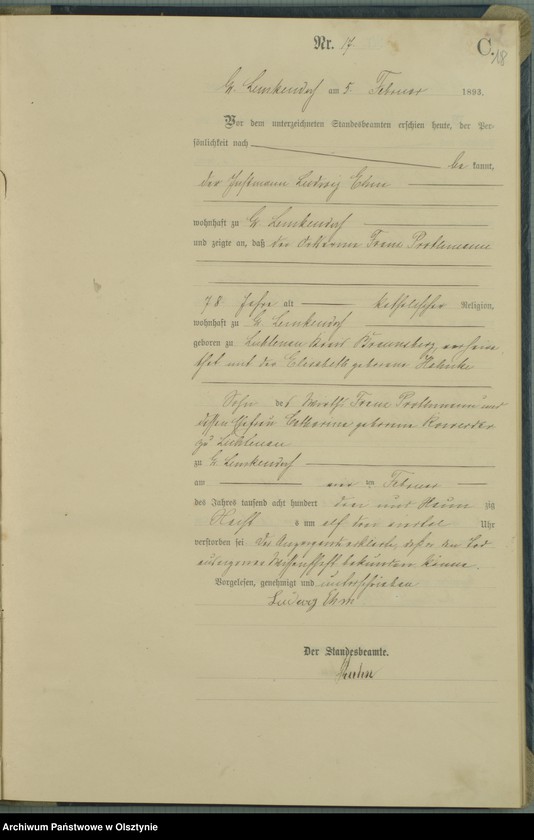 Nr. 17
C.
18
Gr. Lemkendorf am 5. Februar 1893.
Vor dem unterzeichneten Standesbeamten erschien heute, der Per-
sönlichkeit nach
be kannt,
der Instmann Ludwig Ehm
wohnhaft zu Gr. Lemkendorf
und zeigte an, daß der Ortsarme Franz Prothmann
78 Jahre alt katholischer Religion,
wohnhaft zu Gr. Lemkendorf
geboren zu Kreis Braunsberg, verheira
thet mit der Elisabeth geborene
Sohn des Franz Prothmann und
dessen Ehefrau Catharina geborene
zu
zu Gr. Lemkendorf
am ten Februar
des Jahres tausend acht hundert drei und Neun zig
Nachts um elf ein viertel Uhr
verstorben sei Der Angezeigende erklärte, daß er den Tod
aus eigener Wissenschaft bekunden könne.
Vorgelesen, genehmigt und unterschrieben
Ludwig Ehm
Der Standesbeamte.
Archiwum Państwowe w Olsztynie